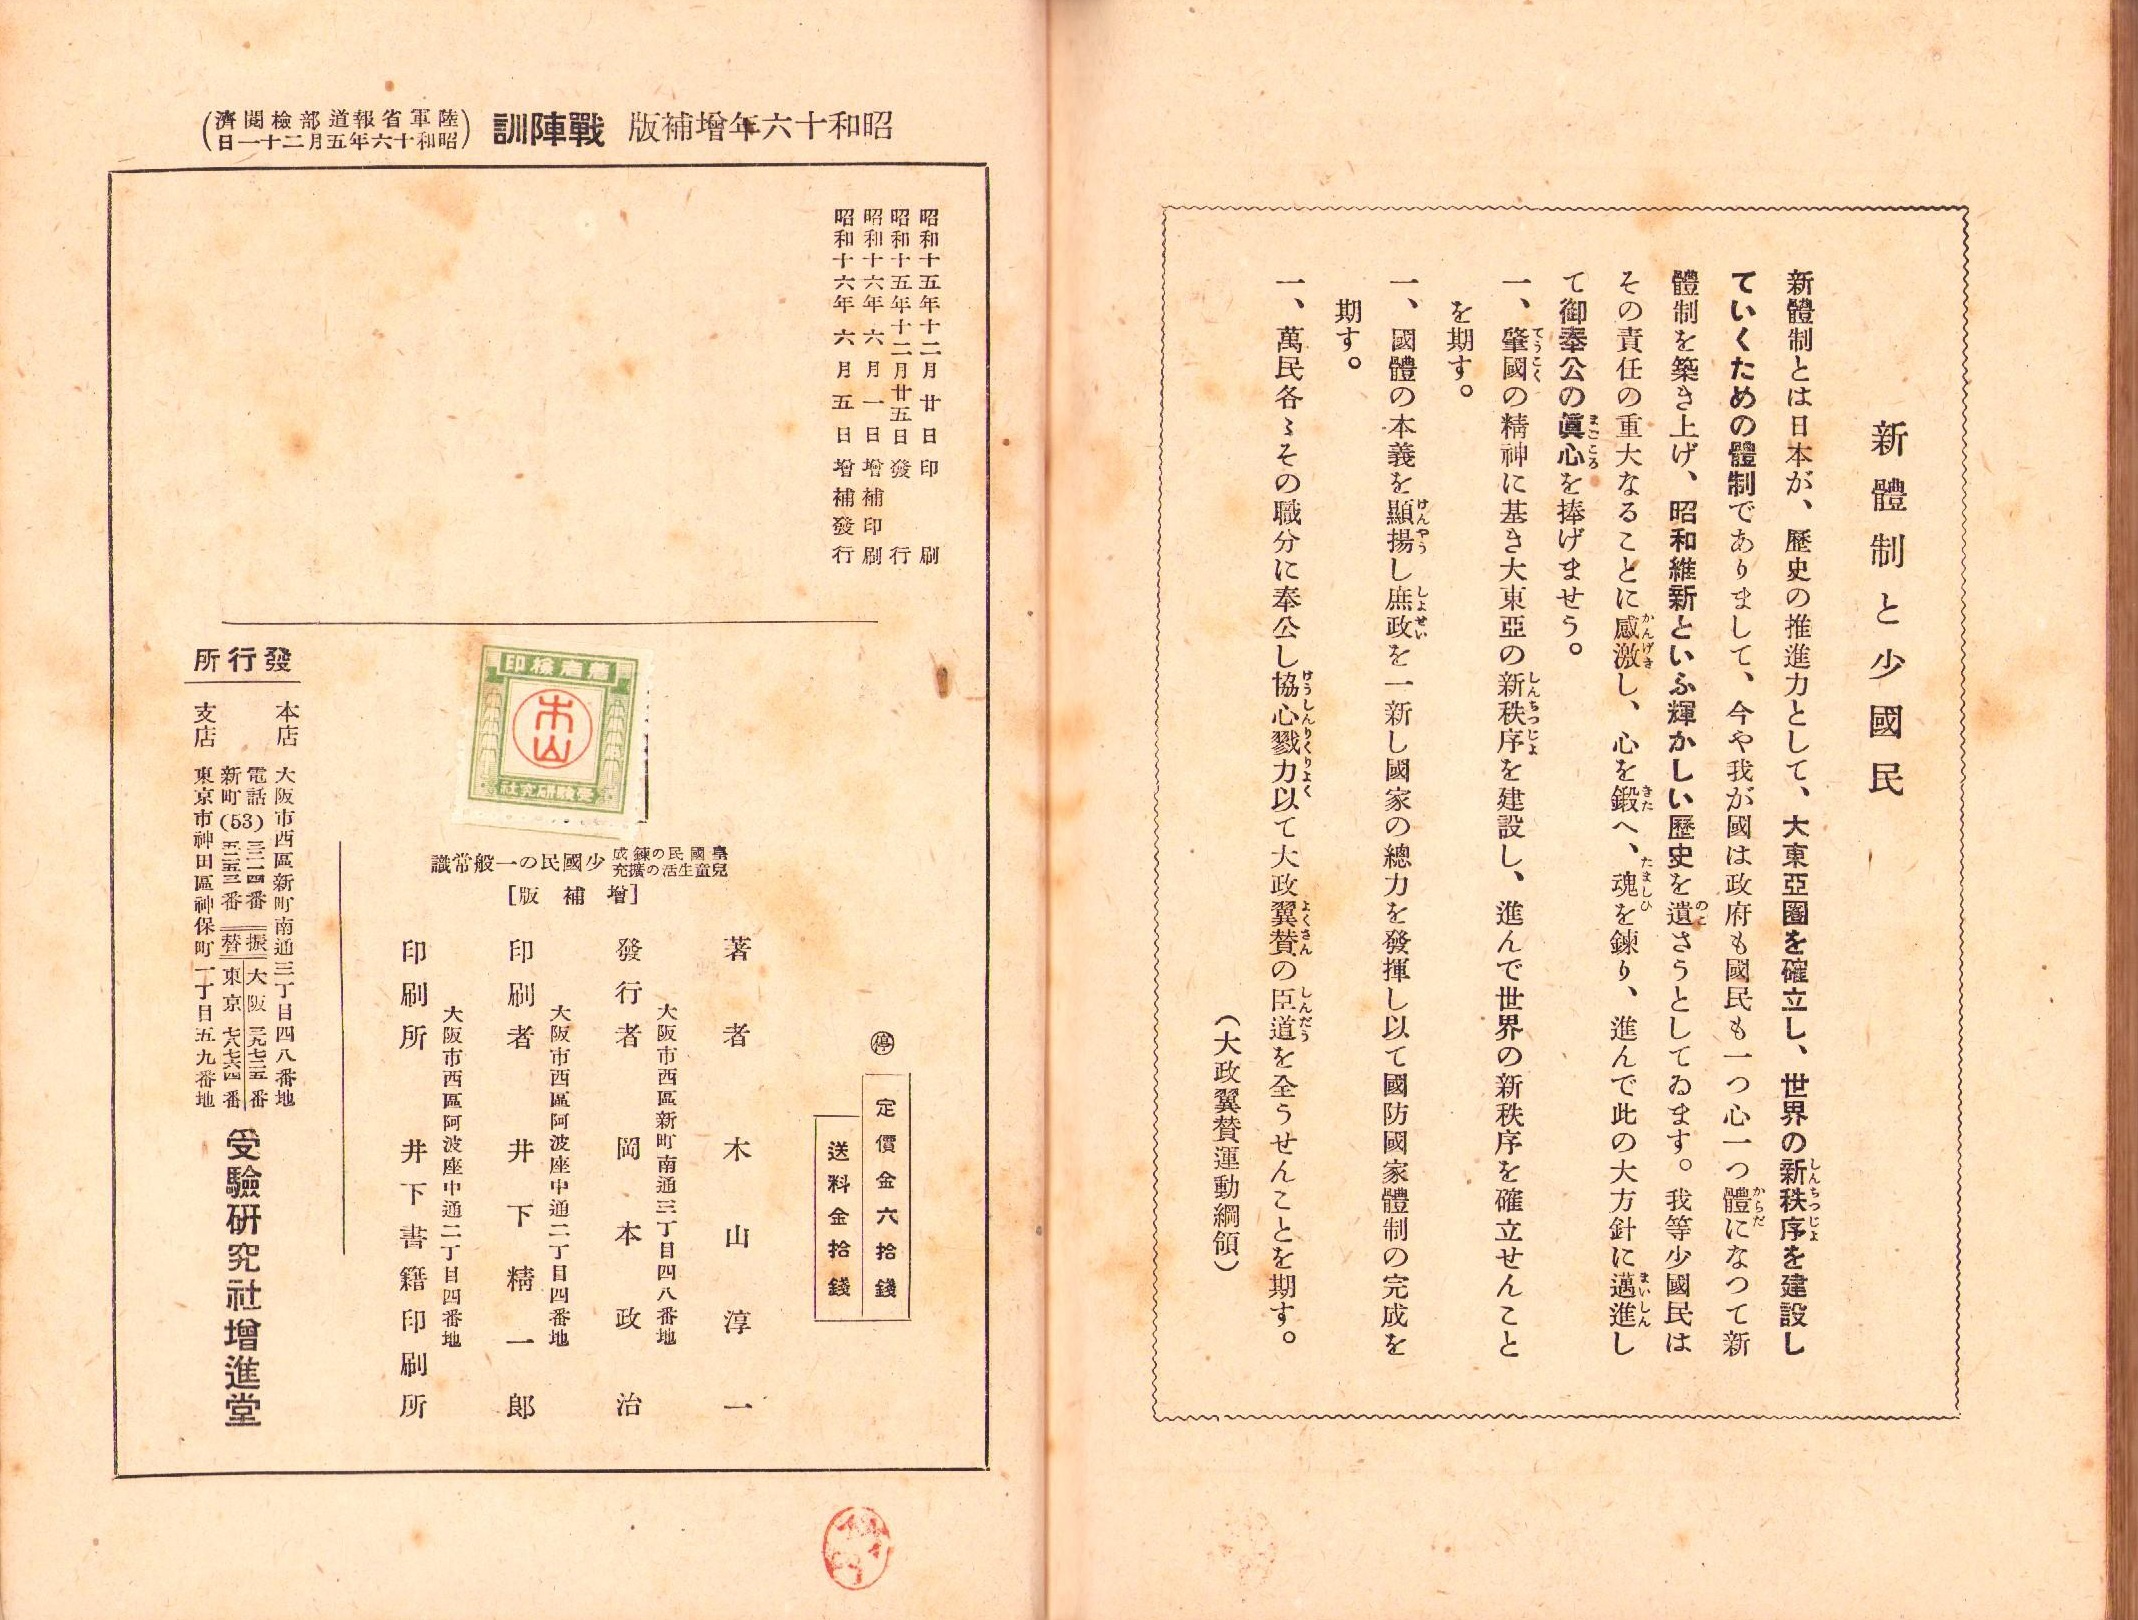 新體制と少國民
新體制とは日本が、歷史の推進力として、大東亞圈を確立し、世界の新秩序を建設し
ていくための體制でありまして、今や我が國は政府も國民も一つ心一つ體になつて新
體制を築き上げ、昭和維新といふ輝かしい歷史を遺さうとしてゐます。我等少國民は
その責任の重大なることに感激し、心を鍛へ、魂を鍊り、進んで此の大方針に邁進し
て御奉公の眞心を捧げませう。
一、肇國の精神に基き大東亞の新秩序を建設し、進んで世界の新秩序を確立せんこと
を期す。
一、國體の本義を顯揚し庶政を一新し國家の總力を發揮し以て國防國家體制の完成を
期す。
一、萬民各〻その職分に奉公し協心戮力以て大政翼贊の臣道を全うせんことを期す。
（大政翼贊運動綱領）
昭和十六年增補版 戰陣訓（陸軍省報道部檢閱濟
昭和十六年五月二十一日）
昭和十五年十二月廿日印刷
昭和十五年十二月廿五日發行
昭和十六年六月一日增補印刷
昭和十六年六月五日增補發行
著者檢印
木山
受驗研究社
皇國民の鍊成
兒童生活の擴充
少國民の一般常識
［增補版］
㊡
定價金六拾錢
送料金拾錢
著者 木山淳一
大阪市西區新町南通三丁目四八番地
發行者 岡本政治
大阪市西區阿波座中通二丁目四番地
印刷者 井下精一郎
大阪市西區阿波座中通二丁目四番地
印刷所 井下書籍印刷所
發行所
本店 大阪市西區新町南通三丁目四八番地
電話 三二一四番
新町(53) 五二五三番
振替
大阪 三九七二五番
東京 七八七六四番
支店 東京市神田區神保町一丁目五九番地
受驗研究社增進堂